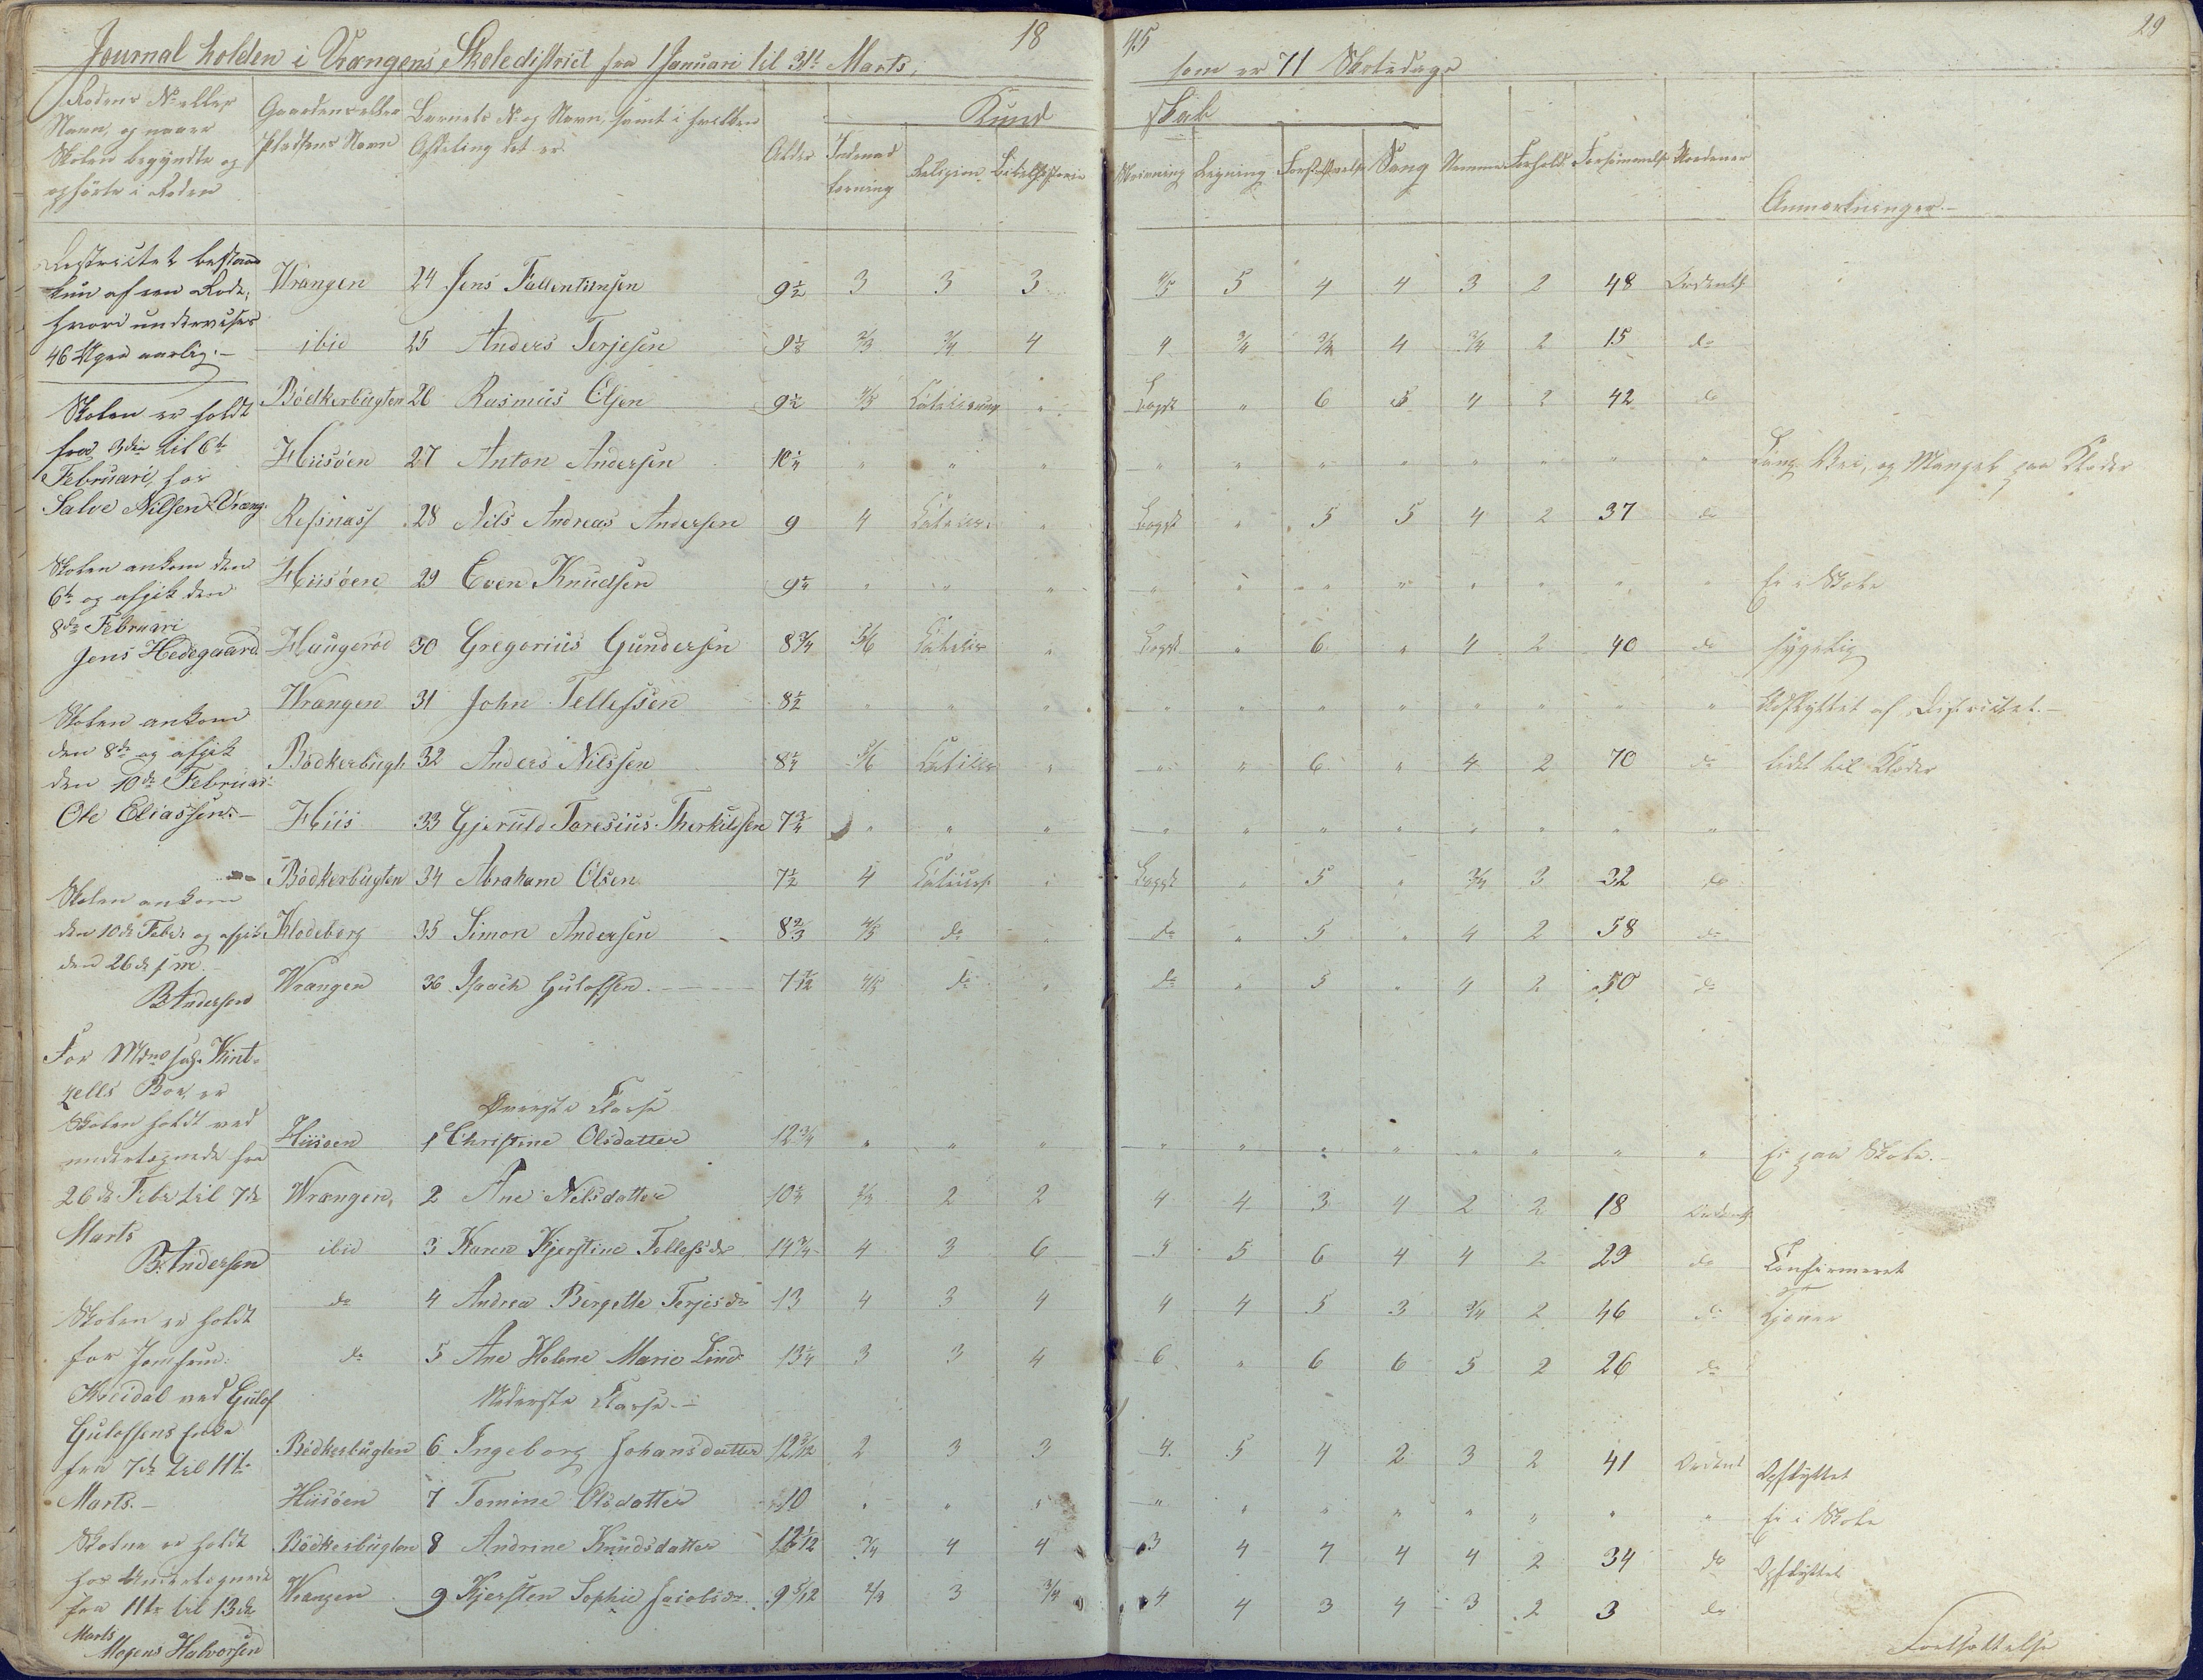 Journal holden i Vrangens Skoledistrict fra 1 Januari til 31te Marts, 18
45 29
som er 71 Skoledage
Rodens No eller Navn, og naar Skolen begyndte og ophørte i Roden
Gaardens eller Pladsens Navn
Barnets No og Navn, samt i hvilken Afdeling det er
Alder
Kund
skab
Religion
Bibelhistorie
Skrivning
Regning
Sang
Nemme
Forhold
Forsømmelse
Anmærkninger.
Districtet bestaaer
kun af een Rode,
hvori undervises
46 Uger aarlig.
Wrangen 24 Jens Fallentinsen 9½ 3 3 3 4/5 5 4 4 3 2 48 Ordentl
ibid 25 Anders Terjesen 2/3 3/4 4 4 3/4 3/4 4 3/4 2 15 do
Bödkerbugten 26 Rasmus Olsen 9½ 4/5 " " 6 5 4 2 42 do
Hiisöen 27 Anton Andersen 10¼ " " " " " " " " " " " Lang Vei, og Mangel paa Klæder
28 Nils Andreas Andersen 9 4 " " 5 5 4 2 37 do
Hiisöen 29 Even Knudsen " " " " " " " " " " " Ei i Skole
Haugeröd 30 Gregorius Gundersen 8¾ 5/6 " " 6 " 4 2 40 do sygelig
Wrangen 31 John Tellefsen 8½ " " " " " " " " " " " Udflyttet af Districtet.
Bödkerbugt 32 Anders Nilssen 8¼ 5/6 " " " 6 " 4 2 70 do lidt til Klæder
Hiis 33 Gjeruld Toresius Therkildsen 7¾ " " " " " " " " " " "
Bödkerbugten 34 Abraham Olsen 7½ 4 " " 5 " 3/4 3 32 do
Klodeberg 35 Simon Andersen 8⅔ 4/5 do " do " 5 " 4 2 58 do
Wrangen 36 Isaach Gulofsen 4/5 do " do " 5 " 4 2 50 do
Skolen er holdt
fra 3die til 6te
Februari, for
Salve Nilsen Vrang.
Skolen ankom den
6te og afgik den
8de Februari
Jens Hedegaard
Skolen ankom
den 8de og afgik
den 10de Februar
Ole Eliassen.
Skolen ankom
den 10de Febr. og afgik
den 26de s. M.
B Andersen
Øverste Classe
Hiisoen 1 Christine Olsdatter 12¾ " " " " " " " " " " " Ei paa Skole.
Wrangen, 2 Ane Nilsdatter 2/3 2 2 4 4 3 4 2 2 18 Ordentl
ibid 3 Karen Kjerstine Tellefsdr 14¾ 4 3 6 5 6 4 4 2 29 do Confirmeret
do 4 Andrea Bergette Terjesdr 13 4 3 4 4 4 5 3 3/4 2 46 do Tjener
do 5 Ane Helene Marie Lind 13¼ 3 3 4 6 " 6 6 5 2 26 do
Nederste Classe.
Bödkerbugten 6 Ingeborg Johansdatter 2 3 3 4 5 4 2 3 2 41 Ordentl Opflyttet
Hiisöen 7 Tomine Olsdatter 10 " " " " " " " " " " " Ei i Skole
Bödkerbugten 8 Andrine Knudsdatter 3/4 4 4 3 4 4 4 4 2 34 do Opflyttet
Wrangen 9 Kjersten Sophie Jacobsdr. 9 5/12 2/3 3 3/4 4 4 3 4 3 2 3 do
For
Skolen holdt ved
undertegnede fra
26de Febr til 7de
Marts
B. Andersen
Skolen er holdt
for Jomfrue
ved Gulof
Gulofsens Enke
fra 7de til 11te
Marts.
Skolen er holdt
for Undertegnede
fra 11te til 13de
Marts
Mogens Halvorsen
Fortsættelse